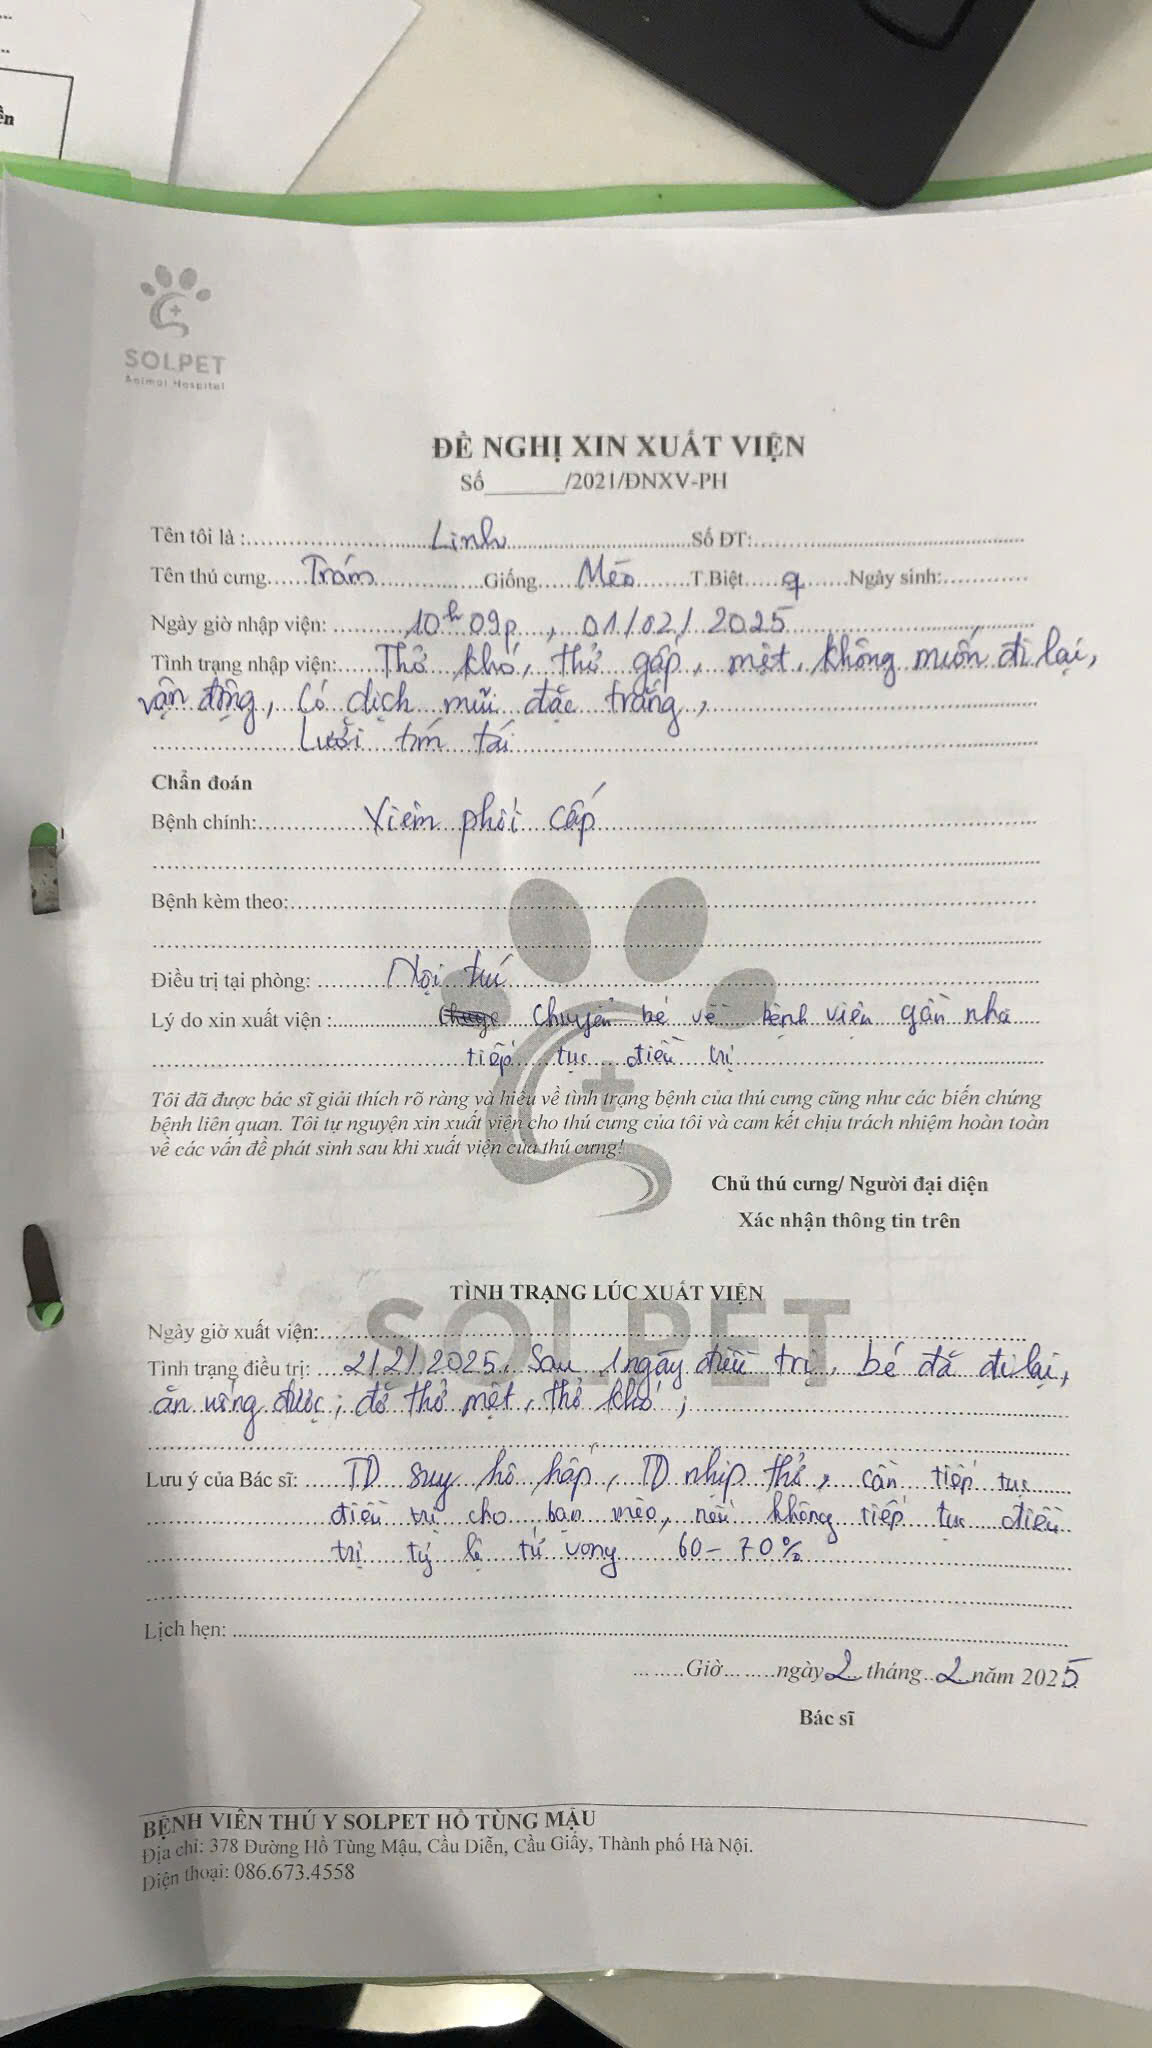 ền
SOLPET
Animal Hospital
ĐỀ NGHỊ XIN XUẤT VIỆN
Số_______/2021/ĐNXV-PH
Tên tôi là : Linh Số ĐT:
Tên thú cưng Trám Giống Mèo T.Biệt ♀ Ngày sinh:
Ngày giờ nhập viện: 10h 09p, 01/02/2025
Tình trạng nhập viện: Thở khó, thở gấp, mệt, không muốn đi lại,
vận động, có dịch mũi đặc trắng,
Lưỡi tím tái
Chẩn đoán
Bệnh chính: Viêm phổi cấp
Bệnh kèm theo:
Điều trị tại phòng: Nội trú
Lý do xin xuất viện : chuyển bé về bệnh viện gần nhà
tiếp tục điều trị
Tôi đã được bác sĩ giải thích rõ ràng và hiểu về tình trạng bệnh của thú cưng cũng như các biến chứng
bệnh liên quan. Tôi tự nguyện xin xuất viện cho thú cưng của tôi và cam kết chịu trách nhiệm hoàn toàn
về các vấn đề phát sinh sau khi xuất viện của thú cưng!
Chủ thú cưng/ Người đại diện
Xác nhận thông tin trên
SOLPET
TÌNH TRẠNG LÚC XUẤT VIỆN
Ngày giờ xuất viện:
Tình trạng điều trị: 2/2/2025. Sau 1 ngày điều trị, bé đã đi lại,
ăn uống được; đỡ thở mệt, thở khó;
Lưu ý của Bác sĩ: TD suy hô hấp, TD nhịp thở, cần tiếp tục
điều trị cho bạn mèo, nếu không tiếp tục điều
trị tỷ lệ tử vong 60-70%
Lịch hẹn:
Giờ ngày 2 tháng 2 năm 2025
Bác sĩ
BỆNH VIÊN THÚ Y SOLPET HỒ TÙNG MẬU
Địa chỉ: 378 Đường Hồ Tùng Mậu, Cầu Diễn, Cầu Giấy, Thành phố Hà Nội.
Điện thoại: 086.673.4558